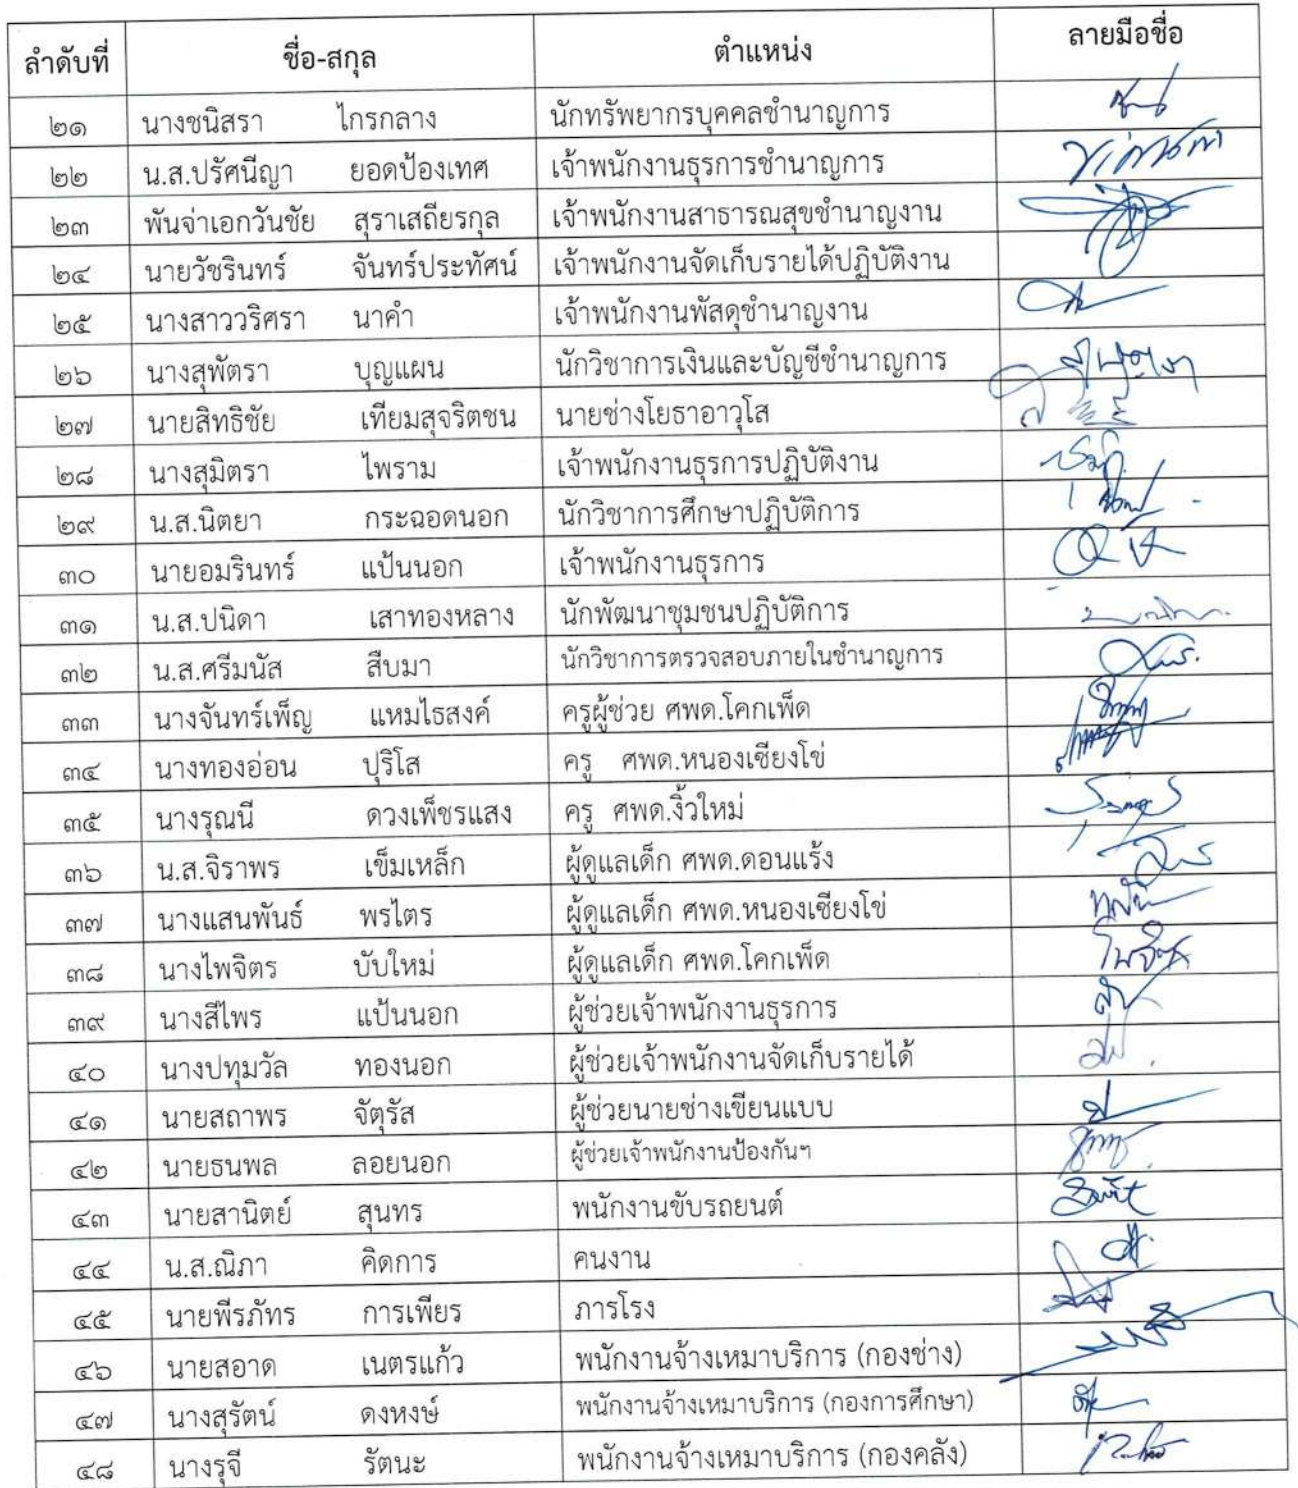 ลำดับที่ ชื่อ-สกุล ตำแหน่ง ลายมือชื่อ
๒๑ นางชนิสรา ไกรกลาง นักทรัพยากรบุคคลชำนาญการ
๒๒ น.ส.ปรัศนีญา ยอดป้องเทศ เจ้าพนักงานธุรการชำนาญการ
๒๓ พันจ่าเอกวันชัย สุราเสถียรกุล เจ้าพนักงานสาธารณสุขชำนาญงาน
๒๔ นายวัชรินทร์ จันทร์ประทัศน์ เจ้าพนักงานจัดเก็บรายได้ปฏิบัติงาน
๒๕ นางสาววริศรา นาคำ เจ้าพนักงานพัสดุชำนาญงาน
๒๖ นางสุพัตรา บุญแผน นักวิชาการเงินและบัญชีชำนาญการ
๒๗ นายสิทธิชัย เทียมสุจริตชน นายช่างโยธาอาวุโส
๒๘ นางสุมิตรา ไพราม เจ้าพนักงานธุรการปฏิบัติงาน
๒๙ น.ส.นิตยา กระฉอดนอก นักวิชาการศึกษาปฏิบัติการ
๓๐ นายอมรินทร์ แป้นนอก เจ้าพนักงานธุรการ
๓๑ น.ส.ปนิดา เสาทองหลาง นักพัฒนาชุมชนปฏิบัติการ
๓๒ น.ส.ศรีมนัส สืบมา นักวิชาการตรวจสอบภายในชำนาญการ
๓๓ นางจันทร์เพ็ญ แหมไธสงค์ ครูผู้ช่วย ศพด.โคกเพ็ด
๓๔ นางทองอ่อน ปุริโส ครู ศพด.หนองเชียงโข่
๓๕ นางรุณนี ดวงเพ็ชรแสง ครู ศพด.งิ้วใหม่
๓๖ น.ส.จิราพร เข็มเหล็ก ผู้ดูแลเด็ก ศพด.ดอนแร้ง
๓๗ นางแสนพันธ์ พรไตร ผู้ดูแลเด็ก ศพด.หนองเชียงโข่
๓๘ นางไพจิตร บับใหม่ ผู้ดูแลเด็ก ศพด.โคกเพ็ด
๓๙ นางสีไพร แป้นนอก ผู้ช่วยเจ้าพนักงานธุรการ
๔๐ นางปทุมวัล ทองนอก ผู้ช่วยเจ้าพนักงานจัดเก็บรายได้
๔๑ นายสถาพร จัตุรัส ผู้ช่วยนายช่างเขียนแบบ
๔๒ นายธนพล ลอยนอก ผู้ช่วยเจ้าพนักงานป้องกันฯ
๔๓ นายสานิตย์ สุนทร พนักงานขับรถยนต์
๔๔ น.ส.ณิภา คิดการ คนงาน
๔๕ นายพีรภัทร การเพียร ภารโรง
๔๖ นายสอาด เนตรแก้ว พนักงานจ้างเหมาบริการ (กองช่าง)
๔๗ นางสุรัตน์ ดงหงษ์ พนักงานจ้างเหมาบริการ (กองการศึกษา)
๔๘ นางรุจี รัตนะ พนักงานจ้างเหมาบริการ (กองคลัง)